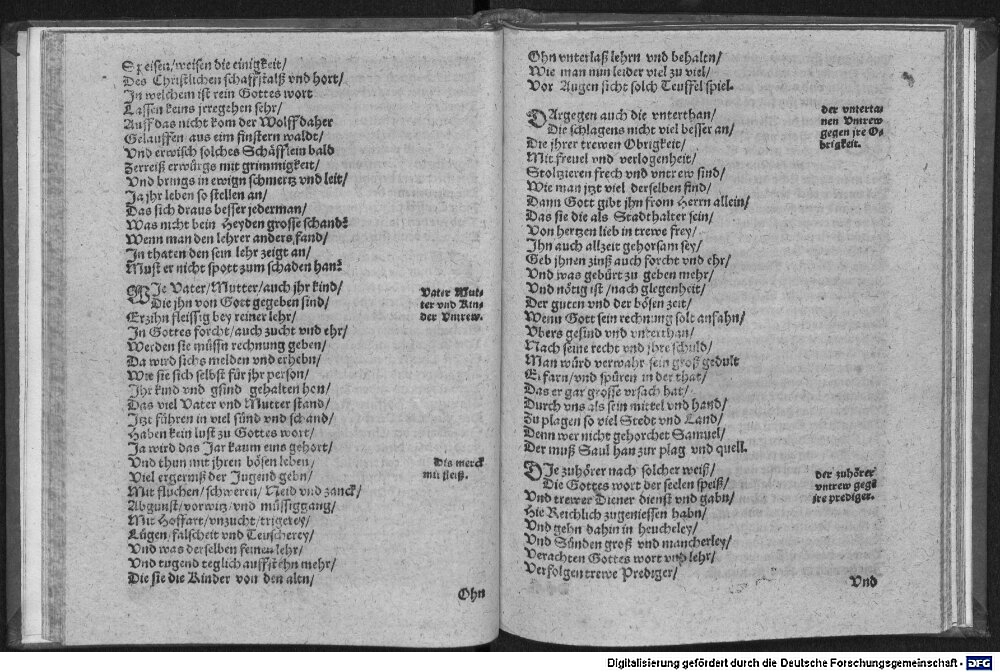 Speisen/weisen die einigkeit/
Des Christlichen schaffstalß vnd hort/
In welchem ist rein Gottes wort
Lassen keins jrregehen sehr/
Auff das nicht kom der Wolff daher
Gelauffen aus eim finstern waldt/
Vnd erwisch solches Schäfflein bald
Zerreiß erwürgs mit grimmigkeit/
Vnd brings in ewign schmertz vnd leit/
Ja jhr leben so stellen an/
Das sich draus besser jederman/
Was nicht bein Heyden grosse schand?
Wenn man den lehrer anders fand/
In thaten den sein lehr zeigt an/
Must er nicht spott zum schaden han?
WJe Vater/Mutter/auch jhr kind/
Die jhn von Gott gegeben sind/
Vater Mut-
ter vnd Kin-
der Vntrew.
Erzihn fleissig bey reiner lehr/
In Gottes forcht/auch zucht vnd ehr/
Werden sie müssn rechnung geben/
Da wird sichs melden vnd erhebn/
Wie sie sich selbst für jhr person/
Ihr kind vnd gsind gehalten hon/
Das viel Vater vnd Mutter stand/
Itzt führen in viel sünd vnd schand/
Haben kein lust zu Gottes wort/
Ja wird das Jar kaum eins gehört/
Vnd thun mit jhren bösen leben/
Viel ergerniß der Jugend gebn/
Dis merck
mit fleiß.
Mit fluchen/schweren/Neid vnd zanck/
Abgunst/vorwitz vnd müssiggang/
Mit Hoffart/vnzucht/trigerey/
Lügen/falscheit vnd Teuscherey/
Vnd was derselben feinen lehr/
Vnd tugend teglich auffstehn mehr/
Die sie die Kinder von den altn/
Ohn
Ohn vnterlaß lehrn vnd behaltn/
Wie man nun leider viel zu viel/
Vor Augen sicht solch Teuffel spiel.
DArgegen auch die vnterthan/
Die schlagens nicht viel besser an/
Die jhrer trewen Obrigkeit/
der vnterta-
nen Vntrew
gegen jre O-
brigkeit.
Mit freuel vnd verlogenheit/
Stoltzieren frech vnd vntrew sind/
Wie man jtzt viel derselben find/
Dann Gott gibt jhn from Herrn allein/
Das sie die als Stadthalter sein/
Von hertzen lieb in trewe frey/
Ihn auch allzeit gehorsam sey/
Geb jhnen zinß auch forcht vnd ehr/
Vnd was gebürt zu geben mehr/
Vnd nötig ist/nach glegenheit/
Der guten vnd der bösen zeit/
Wenn Gott sein rechnung solt anfahn/
Vbers gesind vnd vnterthan/
Nach seine recht vnd jhre schuld/
Man würd verwahr sein groß gedult
Erfarn/vnd spüren in der that/
Das er gar grosse vrsach hat/
Durch vns als sein mittel vnd hand/
Zu plagen so viel Stedt vnd Land/
Denn wer nicht gehorchet Samuel/
Der muß Saul han zur plag vnd quell.
DIe zuhörer nach solcher weiß/
Die Gottes wort der seelen speiß/
Vnd trewer Diener dienst vnd gabn/
der zuhörer
vntrew gegē
jre prediger.
Hie Reichlich zugeniessen habn/
Vnd gehn dahin in heucheley/
Vnd Sünden groß vnd mancherley/
Verachten Gottes wort vnd lehr/
Verfolgen trewe Prediger/
Vnd
Digitalisierung gefördert durch die Deutsche Forschungsgemeinschaft - DFG